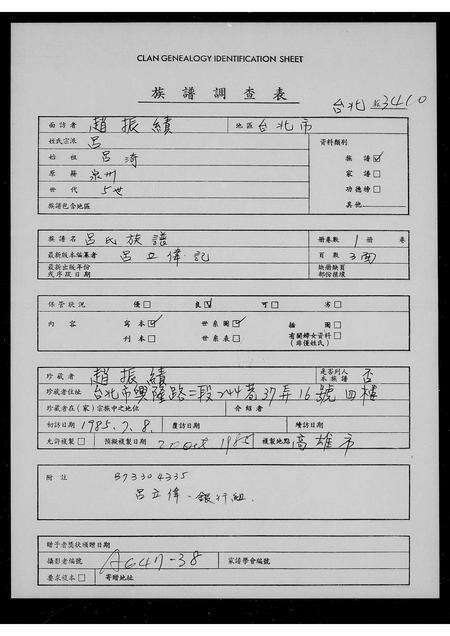 CLAN GENEALOGY IDENTIFICATION SHEET
族譜調查表
台北 3410
面訪者 趙振績 地區 台北市
姓氏宗派 呂 資料類別
始祖 呂渏 族譜☑
原籍 泉州 家譜☐
世代 5世 功德榜☐
族譜包含地區 其他
族譜名 呂氏族譜 冊卷數 1 冊 卷
最新版本編纂者 呂立偉記 頁數 3面
最新出版年份或序跋日期 缺冊缺頁部份損壞
保管狀況 優☐ 良☑ 可☐ 劣☐
內容 寫本☑ 世系圖☑ 插圖☐
刊本☐ 世系表☐ 有關婦女資料(非僅姓氏)☐
珍藏者 趙振績 是否列入本族譜 否
珍藏者住址 台北市興隆路二段244巷37弄16號四樓
珍藏者在(家)宗族中之地位 介紹者
初訪日期 1985.7.8. 覆訪日期 續訪日期
允許複製☐ 預擬複製日期 2 Oct 1985 複製地點 高雄市
附註 B73304335
呂立偉、銀行組.
贈予者獎狀頒贈日期
攝影者編號 A647-38 家譜學會編號
要求複本☐ 寄贈地址